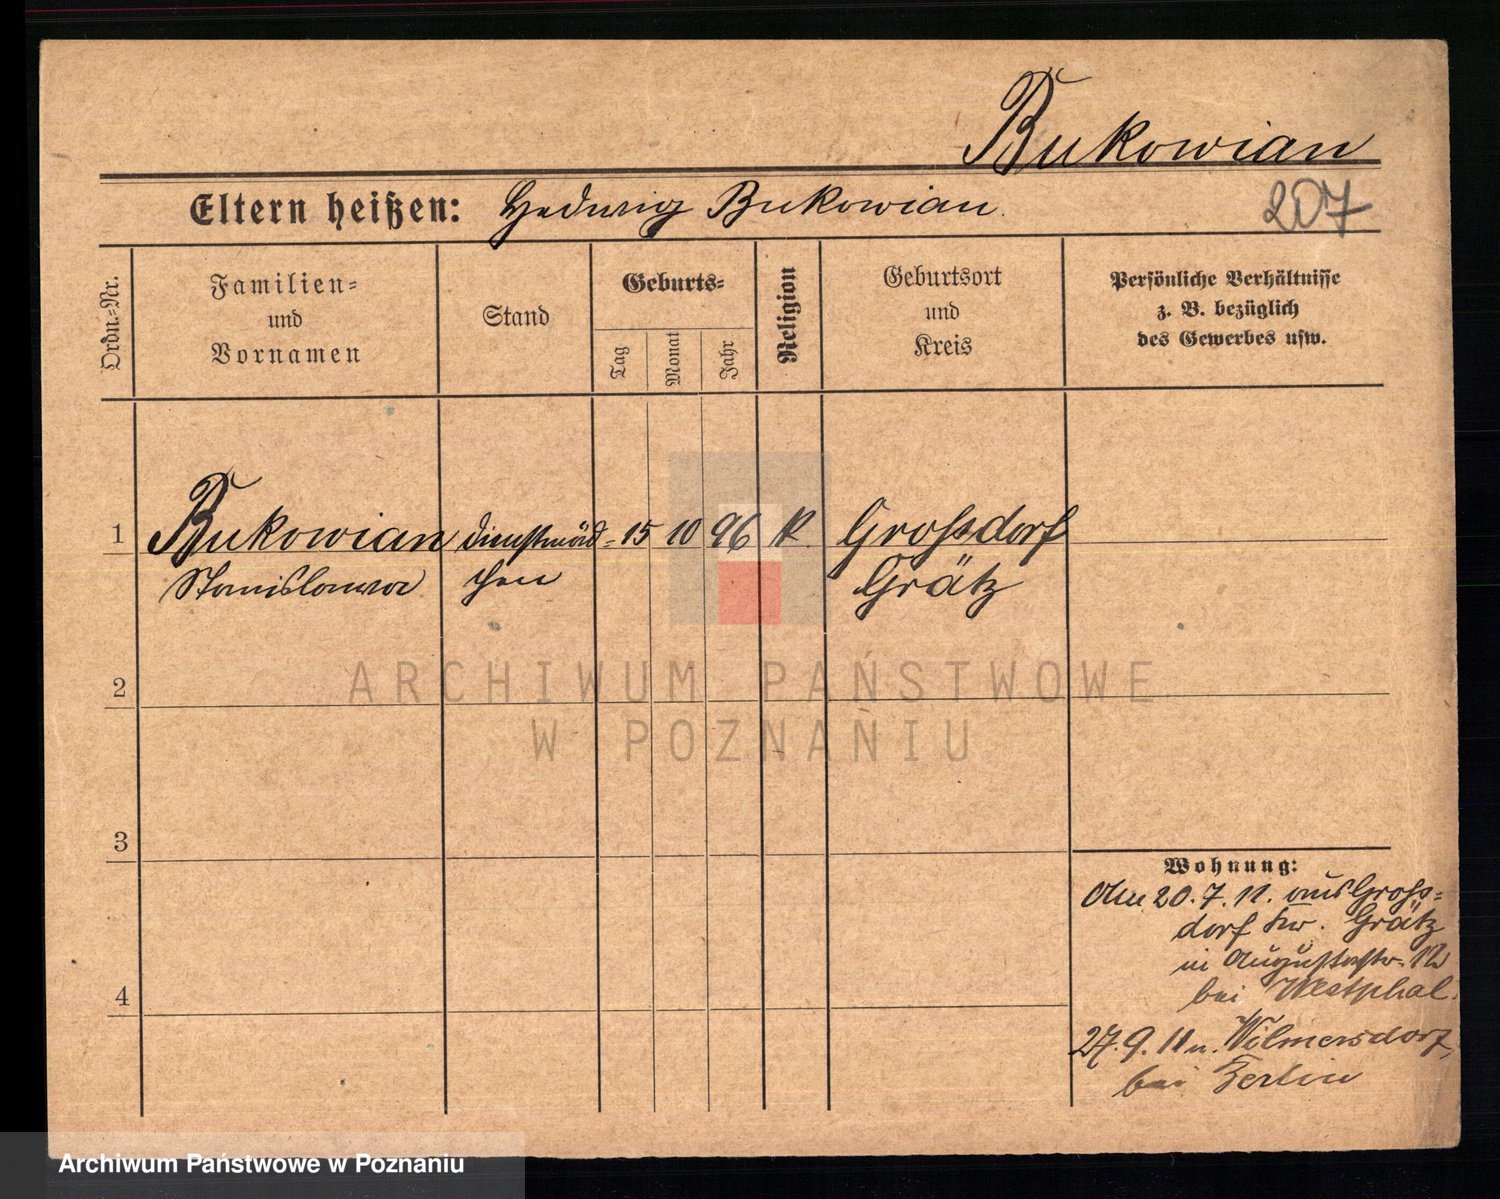 Bukowian
Eltern heißen: Hedwig Bukowian.
207
Ordn.-Nr.
Familien-
und
Vornamen
Stand
Geburts-
Tag
Monat
Jahr
Religion
Geburtsort
und
Kreis
Persönliche Verhältnisse
z. B. bezüglich
des Gewerbes usw.
1 Bukowian Dienstmäd- 15 10 96 K. Grossdorf
Stanislawa chen Grätz
ARCHIWUM PAŃSTWOWE
W POZNANIU
2
3
4
Wohnung:
Am 20.7.11. aus Gross-
dorf Kr. Grätz
in Augustastr. 12
bei Westphal.
27.9.11 n. Wilmersdorf,
bei Berlin
Archiwum Państwowe w Poznaniu